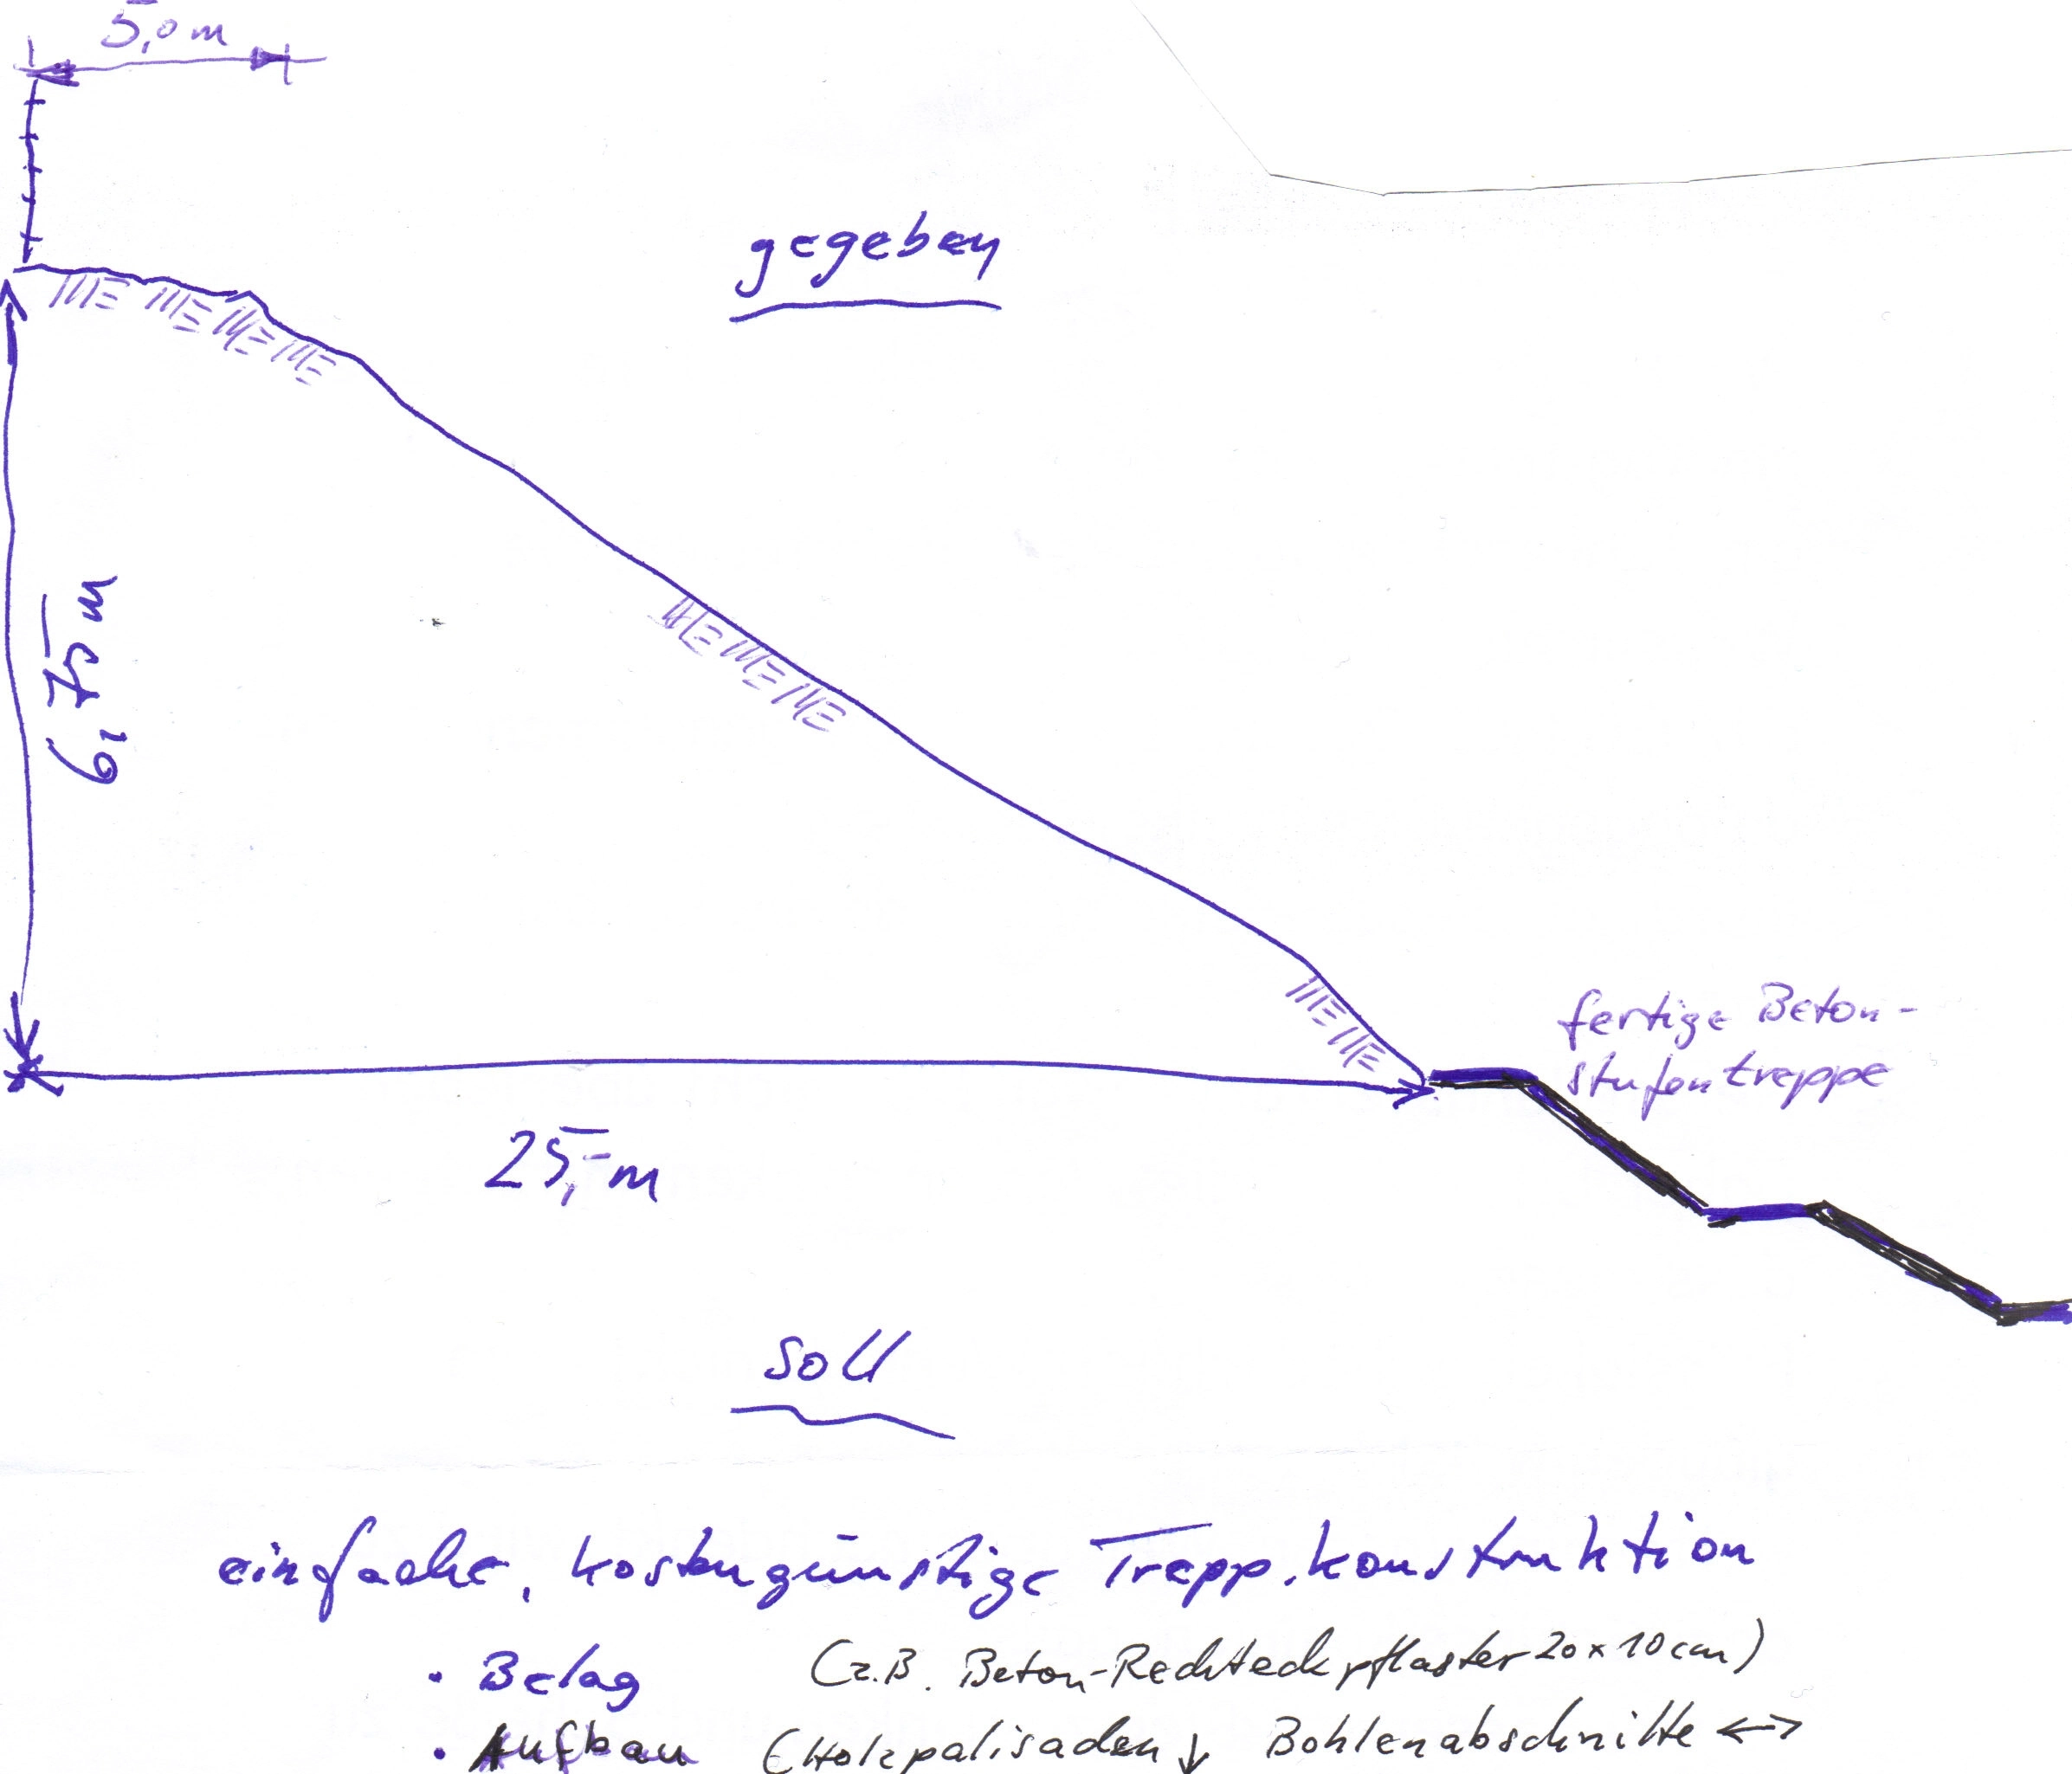 5,0 m
gegeben
6,75 m
fertige Beton-
stufentreppe
25,- m
soll
einfache, kostengünstige Trepp.konstruktion
• Belag (z.B. Beton-Rechteckpflaster 20 x 10 cm)
• Aufbau (Holzpalisaden ↓ Bohlenabschnitte ↔